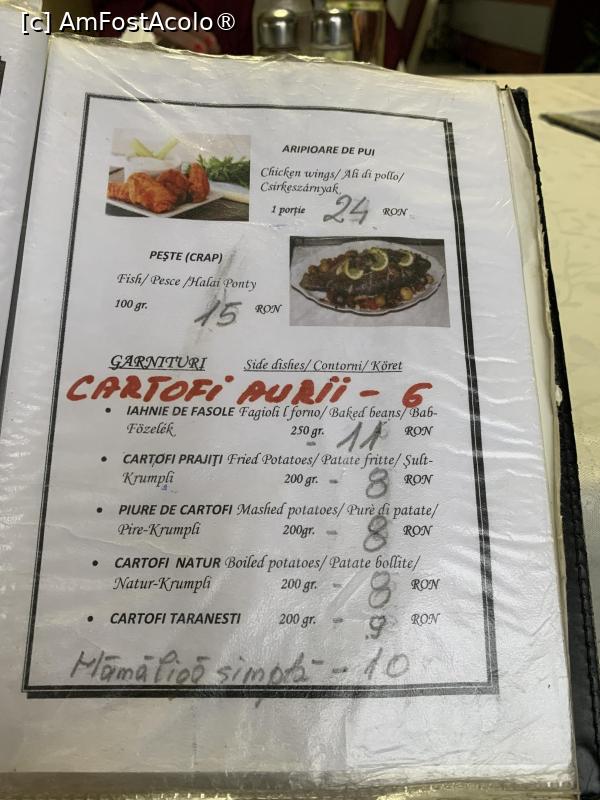 [c] AmFostAcolo®
ARIPIOARE DE PUI
Chicken wings/ Ali di pollo/
Csirkeszárnyak
1 porție 24 RON
PEȘTE (CRAP)
Fish/ Pesce /Halai Ponty
100 gr. 15 RON
GARNITURI Side dishes/ Contorni/ Köret
CARTOFi AURii - 6
• IAHNIE DE FASOLE Fagioli l forno/ Baked beans/ Bab-
Fözelék 250 gr. - 11 RON
• CARTOFI PRAJIȚI Fried Potatoes/ Patate fritte/ Șult-
Krumpli 200 gr. - 8 RON
• PIURE DE CARTOFI Mashed potatoes/ Purè di patate/
Pire-Krumpli 200gr. - 8 RON
• CARTOFI NATUR Boiled potatoes/ Patate bollite/
Natur-Krumpli 200 gr. - 8 RON
• CARTOFI TARANESTI 200 gr. - 9 RON
Mămăligă simplă - 10